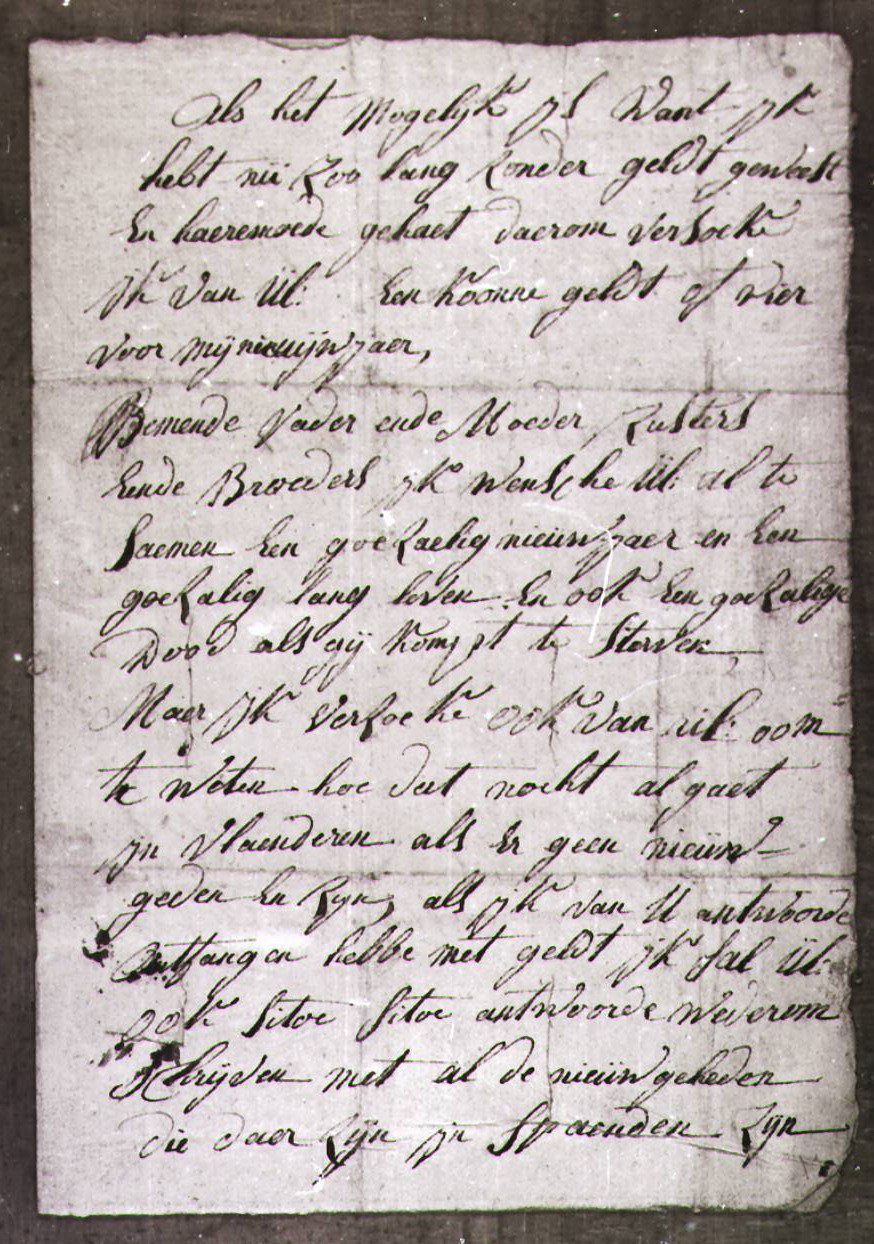 Als het Mogelijk ijs Want ijk
hebt nü Zoo lang Zonder geldt geweest
En haeremoede gehaet daerom versocke
ijk van Ul: Een Koonne geldt of vier
voor mij nieuwijn jaer,
Bemende Vader ende Moeder Zusters
Eende Broeders ijk Wensche Ul: al te
saemen Een goeZaelig nieüw jaer en Een
goeZalig lang leven En ook Een goeZalige
Dood als gij kompt te Sterven,
Maer ijk verZoeke ook van ul: oom
te Weten hoe dat nocht al gaet
ijn Vlaenderen als Er geen nieüw-
geden En Zijn, als ijk van U antwoorde
ontfangen hebbe met geldt ijk sal Ul:
ook sitoe sitoe antwoorde wederom
schrijven met al de nieüwgeheden
die daer Zijn ijn Spaenden Zijn